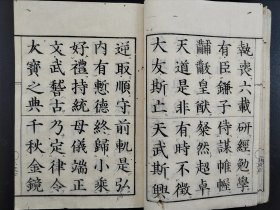 執喪六載研經勉學
有臣鎌子侍謀帷幄
黼黻皇猷粲然趍卓
天道是非有時不徴
大友斯亡天武斯興
逆取順守前軌是弘
内有慙德終歸小乘
好禮持統母儀端正
文武嵇古乃定律令
大寶之典千秋金鏡